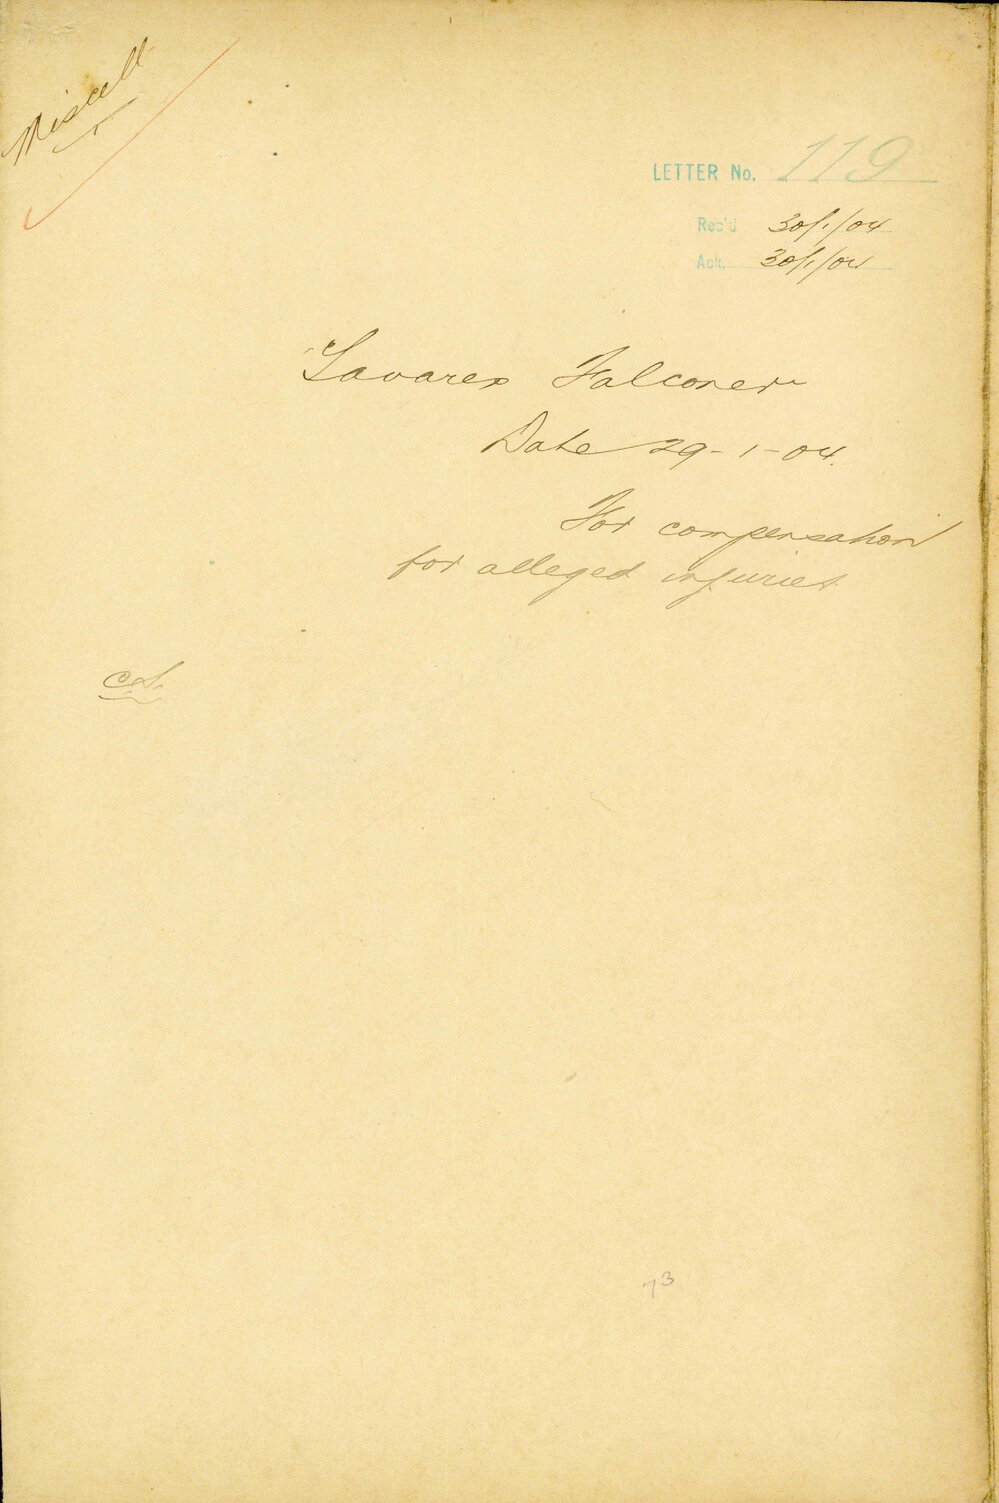 Miscell
LETTER No. 119
Rec'd 30/1/04
Ack. 30/1/04
Falconer
Date 29-1-04.
For compensation
for alleged injuries
73